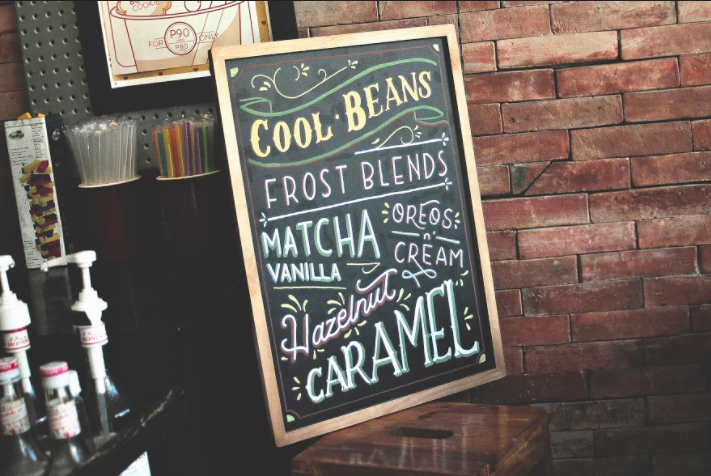 COOKIE
P90
FOR ONLY
P80
COOL · BEANS
FROST BLENDS
MATCHA
VANILLA
OREOS
n'
CREAM
Hazelnut
CARAMEL